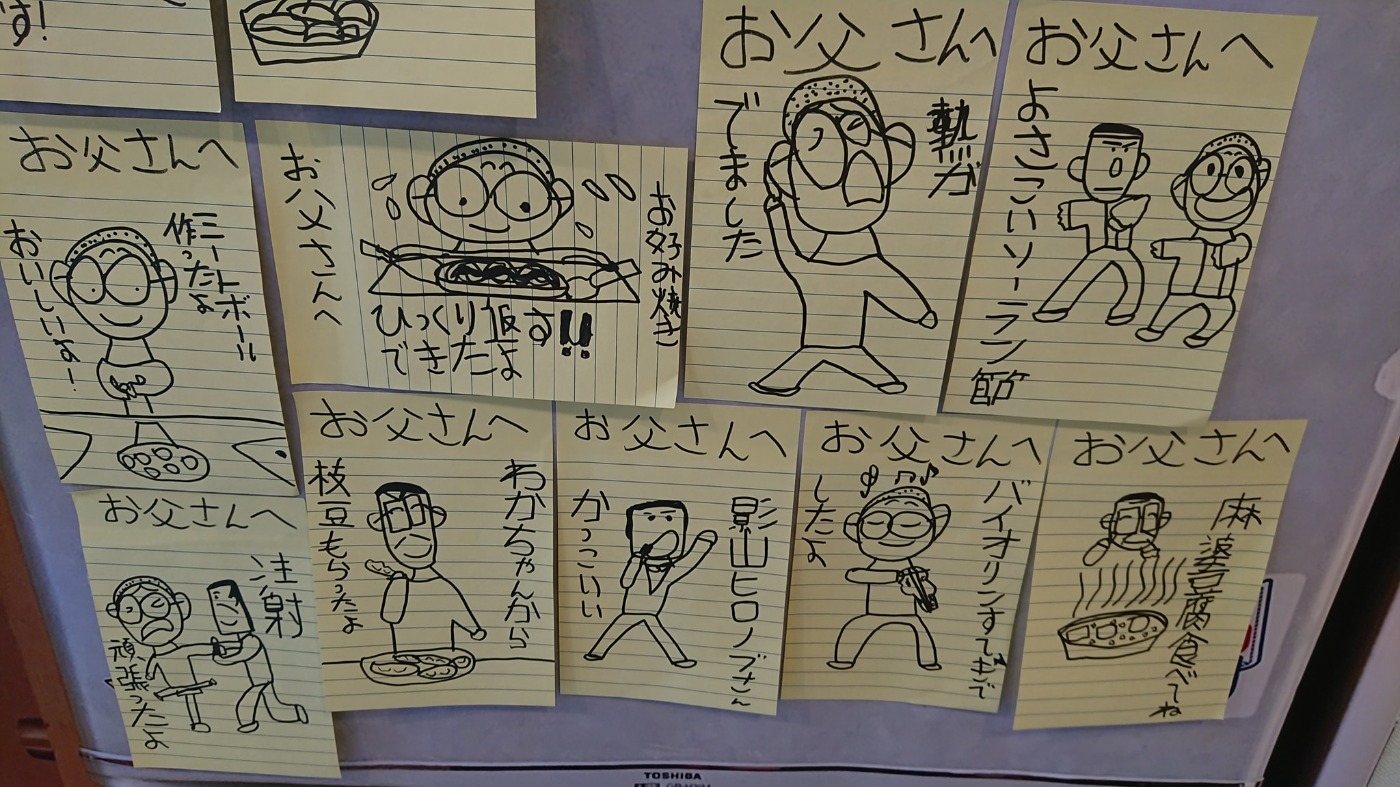 す!
お父さんへ
ミートボール
作ったよ
おいしいな!
お好み焼き
ひっくり返す!!
できたよ
お父さんへ
お父さんへ
熱が
でました
お父さんへ
よさこいソーラン節
お父さんへ
注射
頑張ったよ
お父さんへ
わかちゃんから
枝豆もらったよ
お父さんへ
影山ヒロノブさん
かっこいい
お父さんへ
バイオリンすてきで
したよ
お父さんへ
麻婆豆腐食べてね
TOSHIBA